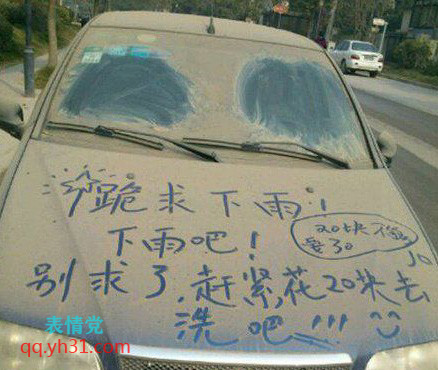 跪求下雨!
下雨吧!
20块不值
别求了,赶紧花20块去
洗吧!!!
表情党
qq.yh31.com